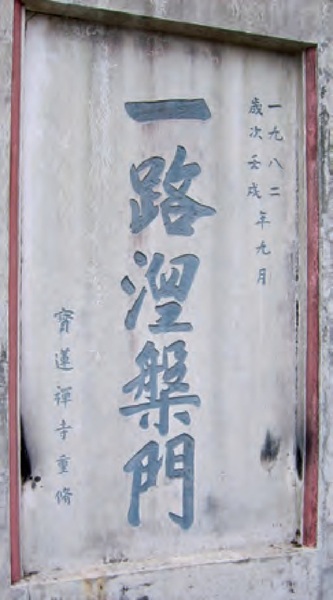 一九八二
歲次壬戌年九月
一路湼槃門
寳蓮禪寺重脩